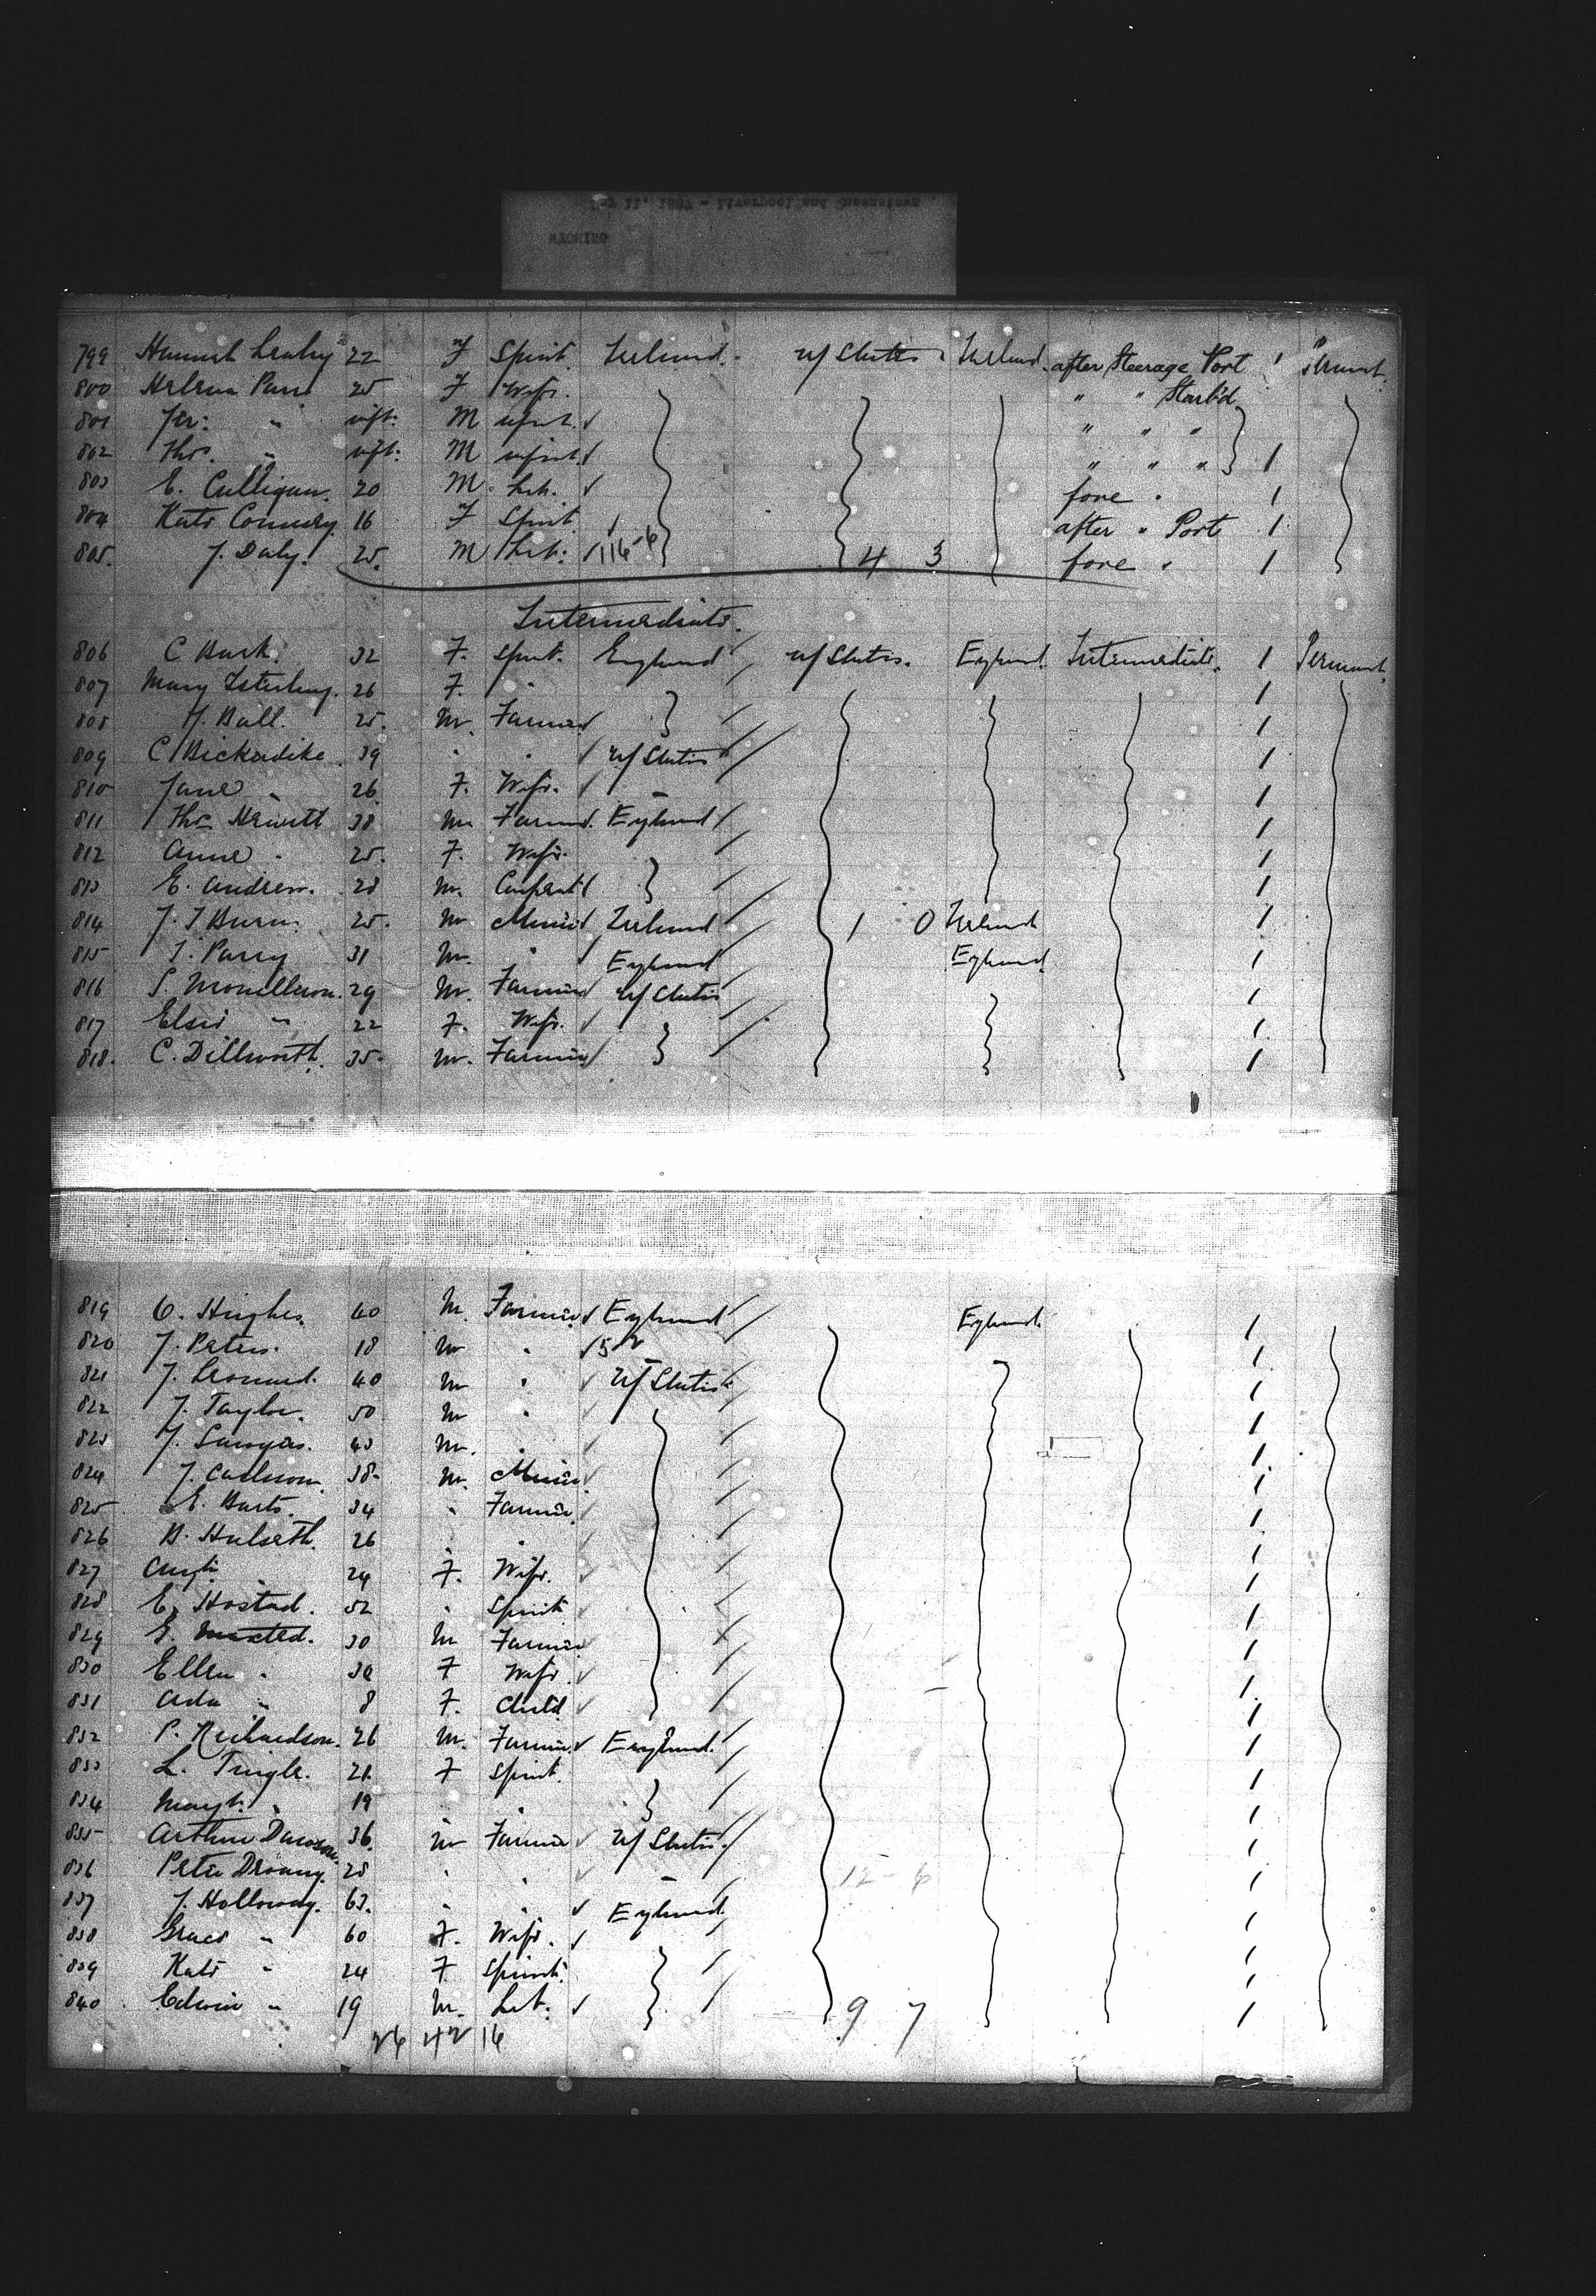 799 Hannah Leahy 22 F Spinst. Ireland. U/States. Ireland. after Steerage Port 1 Permant.
800 Helena Parr 25 F Wife. " " Starb'd
801 Jer: " inft: M infant. " " "
802 Thos. " inft: M infant. " " " 1
803 E. Culligan. 20 M. Lab. fore " 1
804 Kate Connery 16 F Spinst after " Port 1
805. J. Daly. 25. M Lab: 116-6 4 3 fore " 1
Intermediate.
806 C Burk. 32 F. Spinst. England U/States. England. Intermediate. 1 Permant.
807 Mary Esterling. 26 F. " 1
808 J. Ball. 25. M. Farmer 1
809 C Bickerdike 39 " " U/States 1
810 Jane " 26 F. Wife. " 1
811 Thos Hewitt 38 M. Farmer. England 1
812 Anne " 25. F. Wife. 1
813 E. Andrew. 28 M. Carpent. 1
814 J. T Burn. 25. M. Miner Ireland 1 0 Ireland 1
815 T. Parry 31 M. " England England 1
816 S. 29 M. Farmer U/States 1
817 Elsie " 22 F. Wife. 1
818. C. Dillworth. 35. M. Farmer 1
819 O. Hughes. 40 M. Farmer England England. 1
820 J. Peters. 18 M " 5 2 " 1
821 J. Leonard. 40 M " U/States 1
822 J. Taylor. 50 M " 1
823 J. Sawyers. 43 M. " 1
824 J. Carlson. 38. M. Miner 1
825 E. Barts. 34 " Farmer. 1
826 B. Hulseth. 26 " " 1
827 24 F. Wife. 1
828 E. Hostad. 52 " Spinst 1
829 G. 30 M Farmer 1
830 Ellen " 30 F Wife. 1
831 Ada " 8 F. Child 1
832 P. Richardson. 26 M. Farmer. England. 1
833 L. Tringle. 21. F Spinst. 1
834 Margt. " 19 " " 1
835 Arthur Dawson. 36. M Farmer U/States. 1
836 Peter 28 " " " 12-6 1
837 J. Holloway. 63. " " England. 1
838 Grace " 60 F. Wife. 1
839 Kate " 24 F Spinst. 1
840 Edwin " 19 M. Lab. 9 7 1
26 42 16